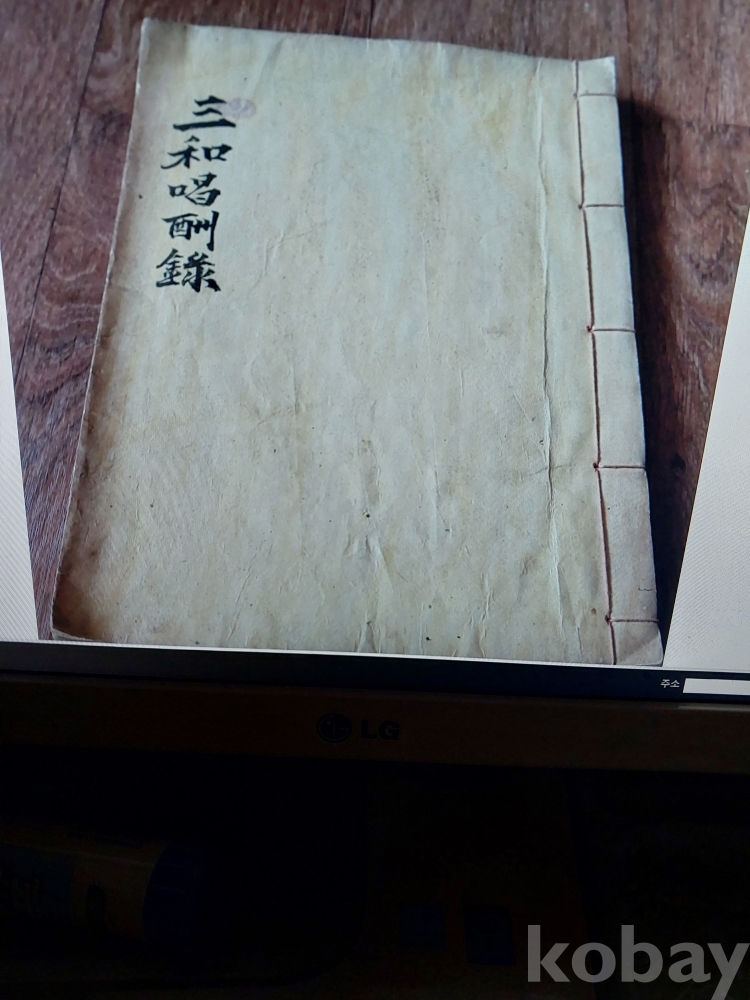 三和唱酬錄
주소
LG
kobay